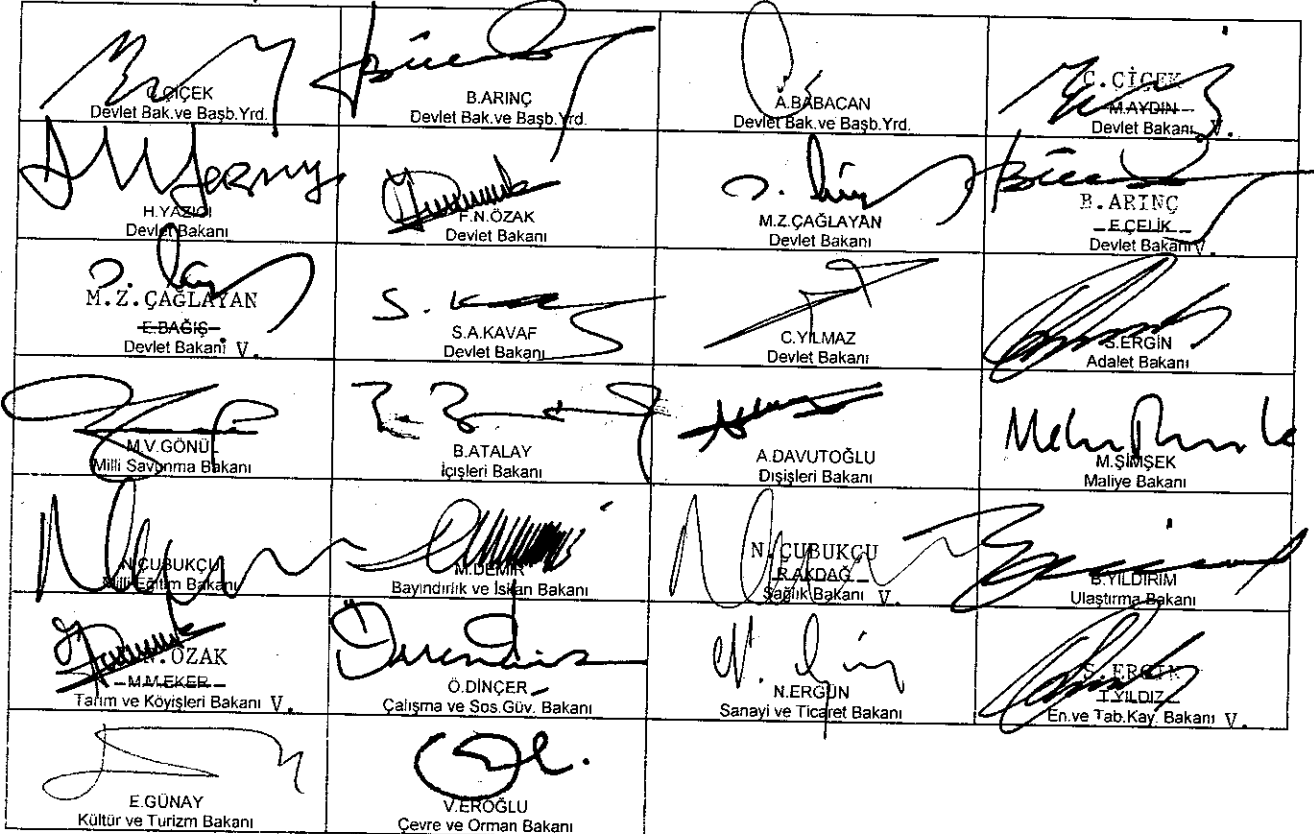 C.ÇİÇEK
Devlet Bak.ve Başb.Yrd.
B.ARINÇ
Devlet Bak.ve Başb.Yrd.
A.BABACAN
Devlet Bak.ve Başb.Yrd.
C.ÇİÇEK
M.AYDIN
Devlet Bakanı V.
H.YAZICI
Devlet Bakanı
F.N.ÖZAK
Devlet Bakanı
M.Z.ÇAĞLAYAN
Devlet Bakanı
B.ARINÇ
E.ÇELİK
Devlet Bakanı V.
M.Z.ÇAĞLAYAN
E.BAĞIŞ
Devlet Bakanı V.
S.A.KAVAF
Devlet Bakanı
C.YILMAZ
Devlet Bakanı
S.ERGİN
Adalet Bakanı
M.V.GÖNÜL
Milli Savunma Bakanı
B.ATALAY
İçişleri Bakanı
A.DAVUTOĞLU
Dışişleri Bakanı
M.ŞİMŞEK
Maliye Bakanı
N.ÇUBUKÇU
Milli Eğitim Bakanı
M.DEMİR
Bayındırlık ve İskan Bakanı
N.ÇUBUKÇU
R.AKDAĞ
Sağlık Bakanı V.
B.YILDIRIM
Ulaştırma Bakanı
N.ÖZAK
M.M.EKER
Tarım ve Köyişleri Bakanı V.
Ö.DİNÇER
Çalışma ve Sos.Güv. Bakanı
N.ERGÜN
Sanayi ve Ticaret Bakanı
S.ERGİN
T.YILDIZ
En.ve Tab.Kay. Bakanı V.
E.GÜNAY
Kültür ve Turizm Bakanı
V.EROĞLU
Çevre ve Orman Bakanı